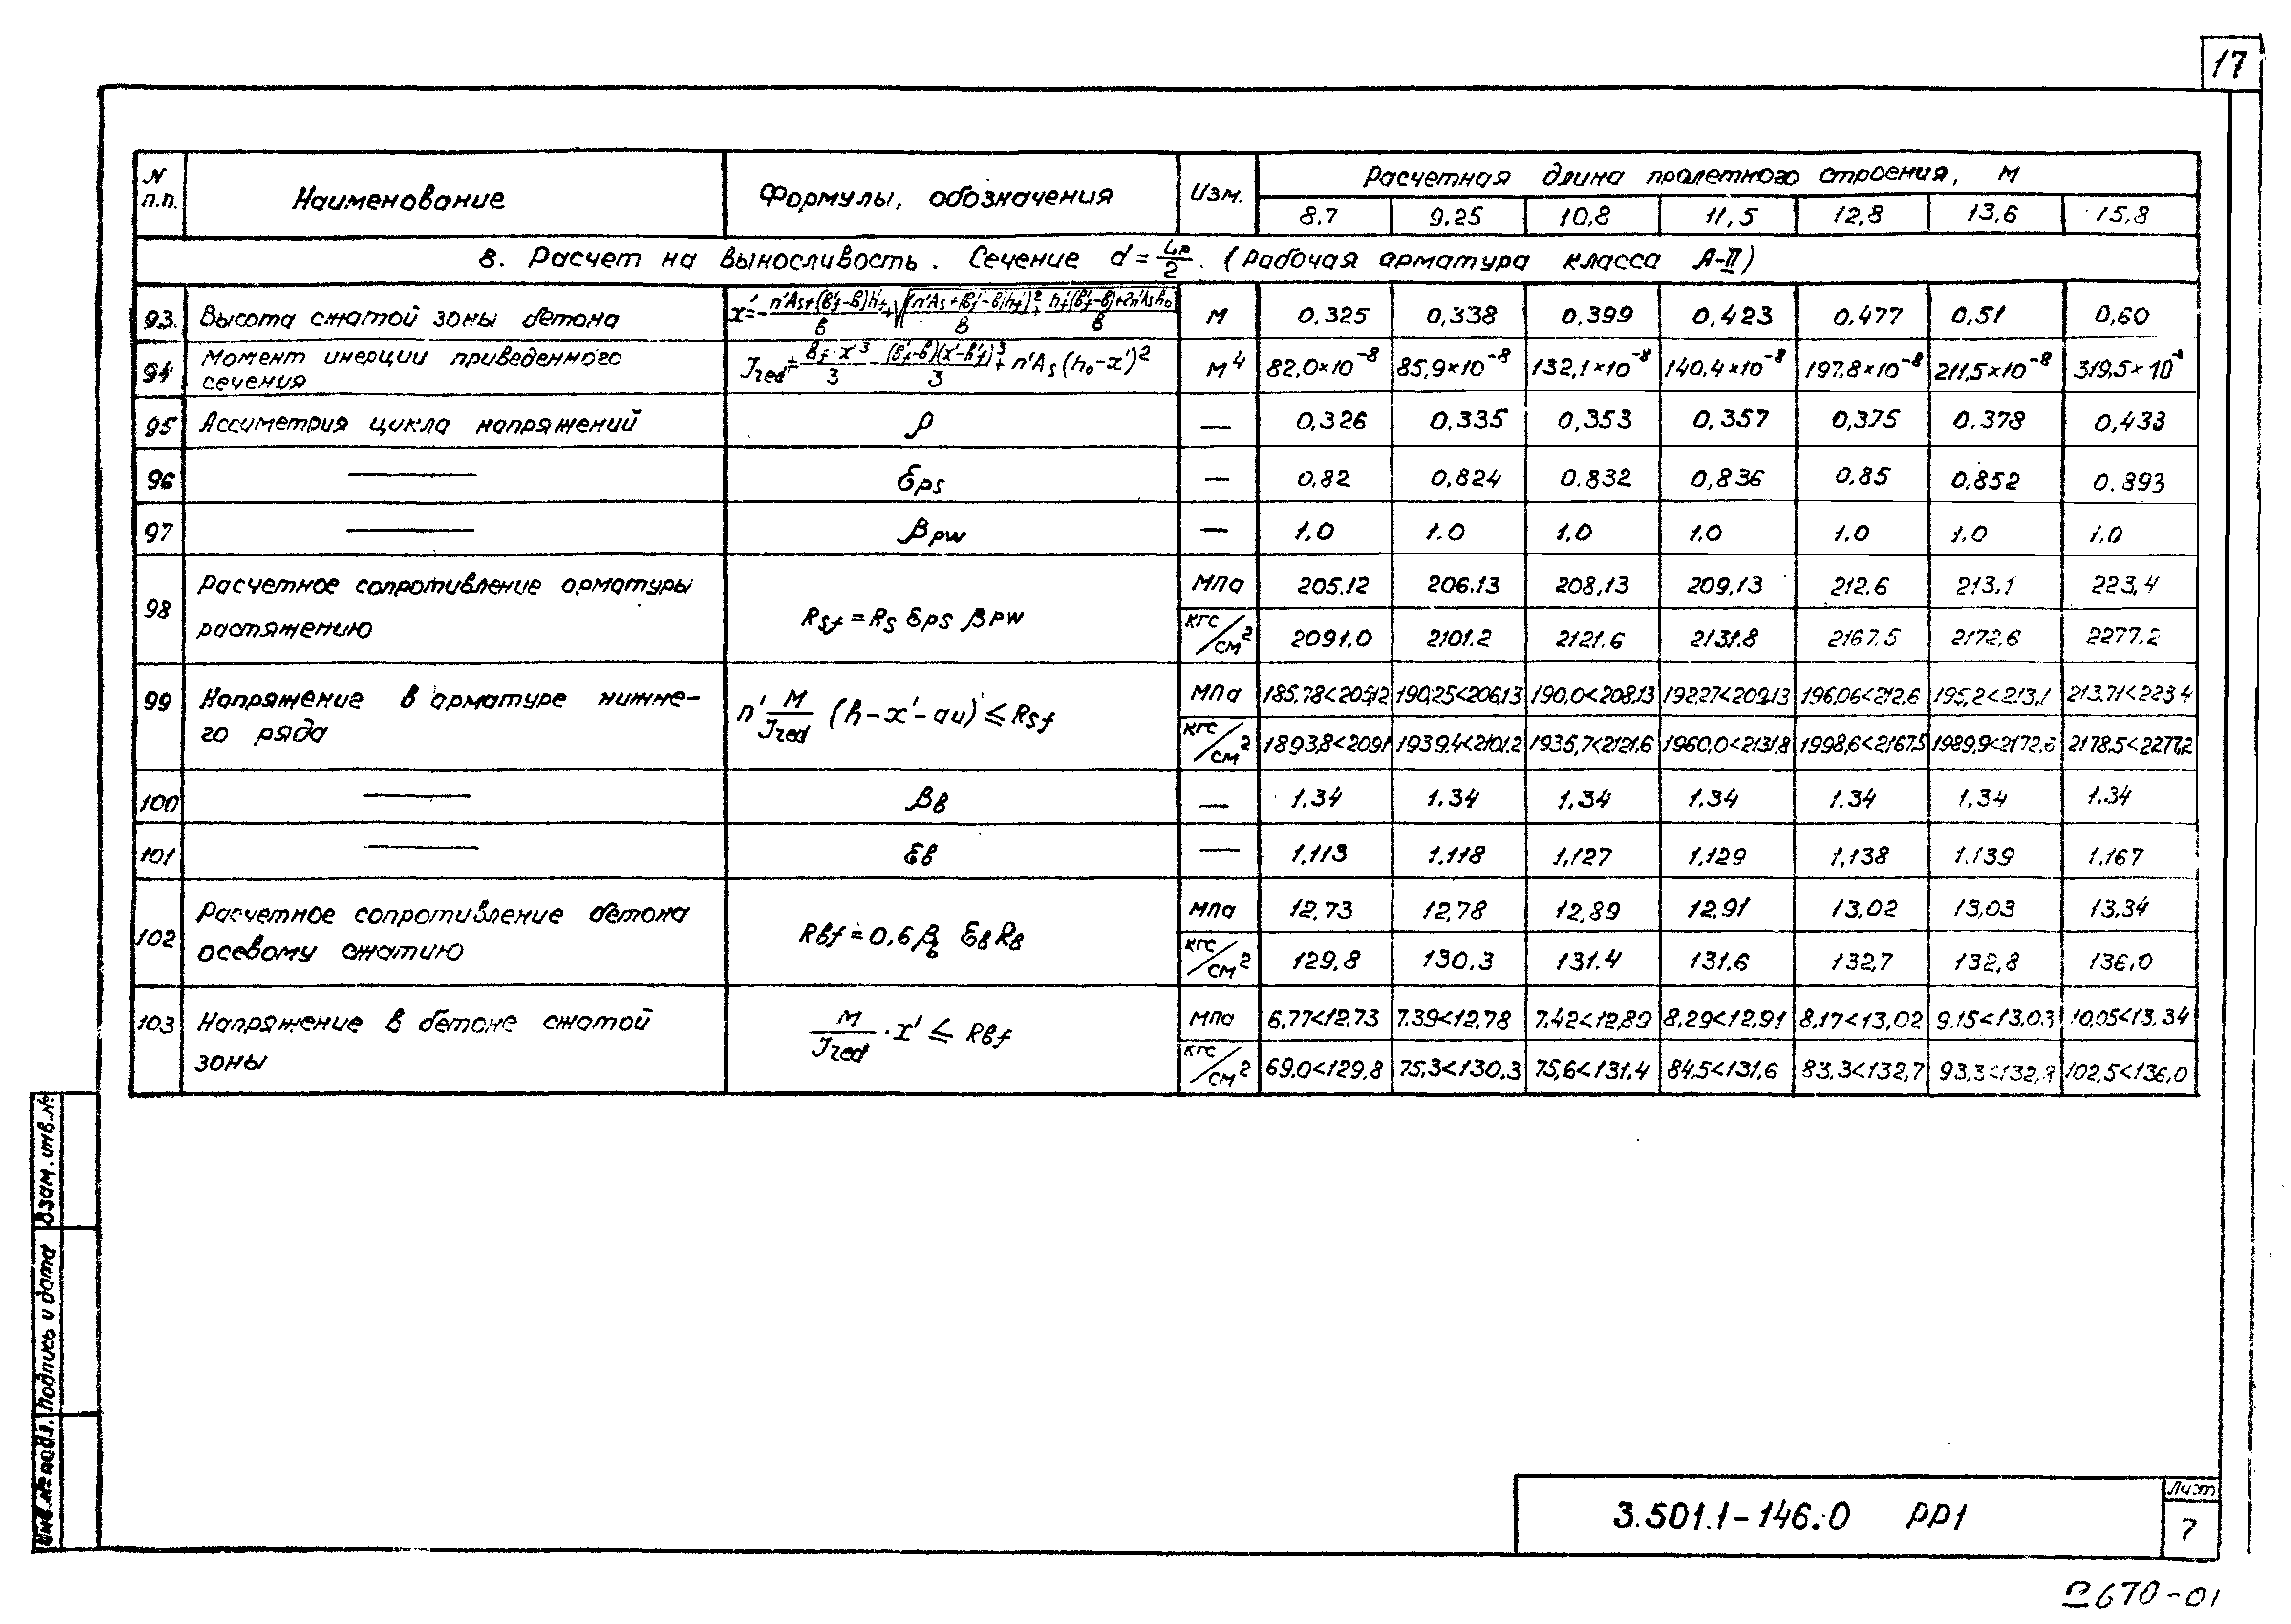 17
N п.п. Наименование Формулы, обозначения Изм. Расчетная длина пролетного строения, м
8,7 9,25 10,8 11,5 12,8 13,6 15,8
8. Расчет на выносливость. Сечение d = Lp/2. (Рабочая арматура класса А-II)
93. Высота сжатой зоны бетона м 0.325 0,338 0.399 0.423 0.477 0.51 0,60
94 Момент инерции приведенного сечения Jred = bf·x³/3 - (b'f-b)(x'-h'f)³/3 + n'As(ho-x')² м4 82,0×10⁻⁸ 85,9×10⁻⁸ 132,1×10⁻⁸ 140,4×10⁻⁸ 197,8×10⁻⁸ 211,5×10⁻⁸ 319,5×10⁻⁸
95 Ассиметрия цикла напряжений ρ — 0,326 0,335 0,353 0,357 0,375 0.378 0,433
96 — Ɛps — 0,82 0,824 0.832 0,836 0.85 0.852 0.893
97 — βpw — 1.0 1.0 1.0 1.0 1.0 1.0 1.0
98 Расчетное сопротивление арматуры растяжению Rsf = Rs Ɛps βpw МПа 205.12 206.13 208,13 209,13 212,6 213,1 223,4
кгс/см2 2091.0 2101.2 2121.6 2131.8 2167.5 2172,6 2277.2
99 Напряжение в арматуре нижне-
го ряда n' M/Jred (h-x'-au) ≤ Rsf МПа 185,78<205,12 190,25<206,13 190,0<208,13 192,27<209,13 196,06<212,6 195,2<213,1 213,71<223,4
кгс/см2 1893,8<2091 1939,4<2101.2 1935,7<2121.6 1960,0<2131,8 1998,6<2167,5 1989,9<2172,6 2178.5<2277,2
100 — βb — 1.34 1.34 1.34 1.34 1.34 1.34 1.34
101 — Ɛb — 1.113 1.118 1,127 1,129 1,138 1.139 1.167
102 Расчетное сопротивление бетона осевому сжатию Rbf = 0,6 βb Ɛb Rb МПа 12,73 12,78 12,89 12,91 13,02 13,03 13,34
кгс/см2 129,8 130.3 131.4 131.6 132,7 132,8 136,0
103 Напряжение в бетоне сжатой зоны M/Jred · x' ≤ Rbf МПа 6,77<12,73 7.39<12,78 7,42<12,89 8,29<12,91 8,17<13,02 9.15<13.03 10,05<13.34
кгс/см2 69,0<129,8 75,3<130,3 75,6<131,4 84,5<131,6 83,3<132,7 93,3<132,8 102,5<136,0
Инв.№ подл. Подпись и дата Взам.инв.№
3.501.1-146.0 РР1
Лист
7
2670-01